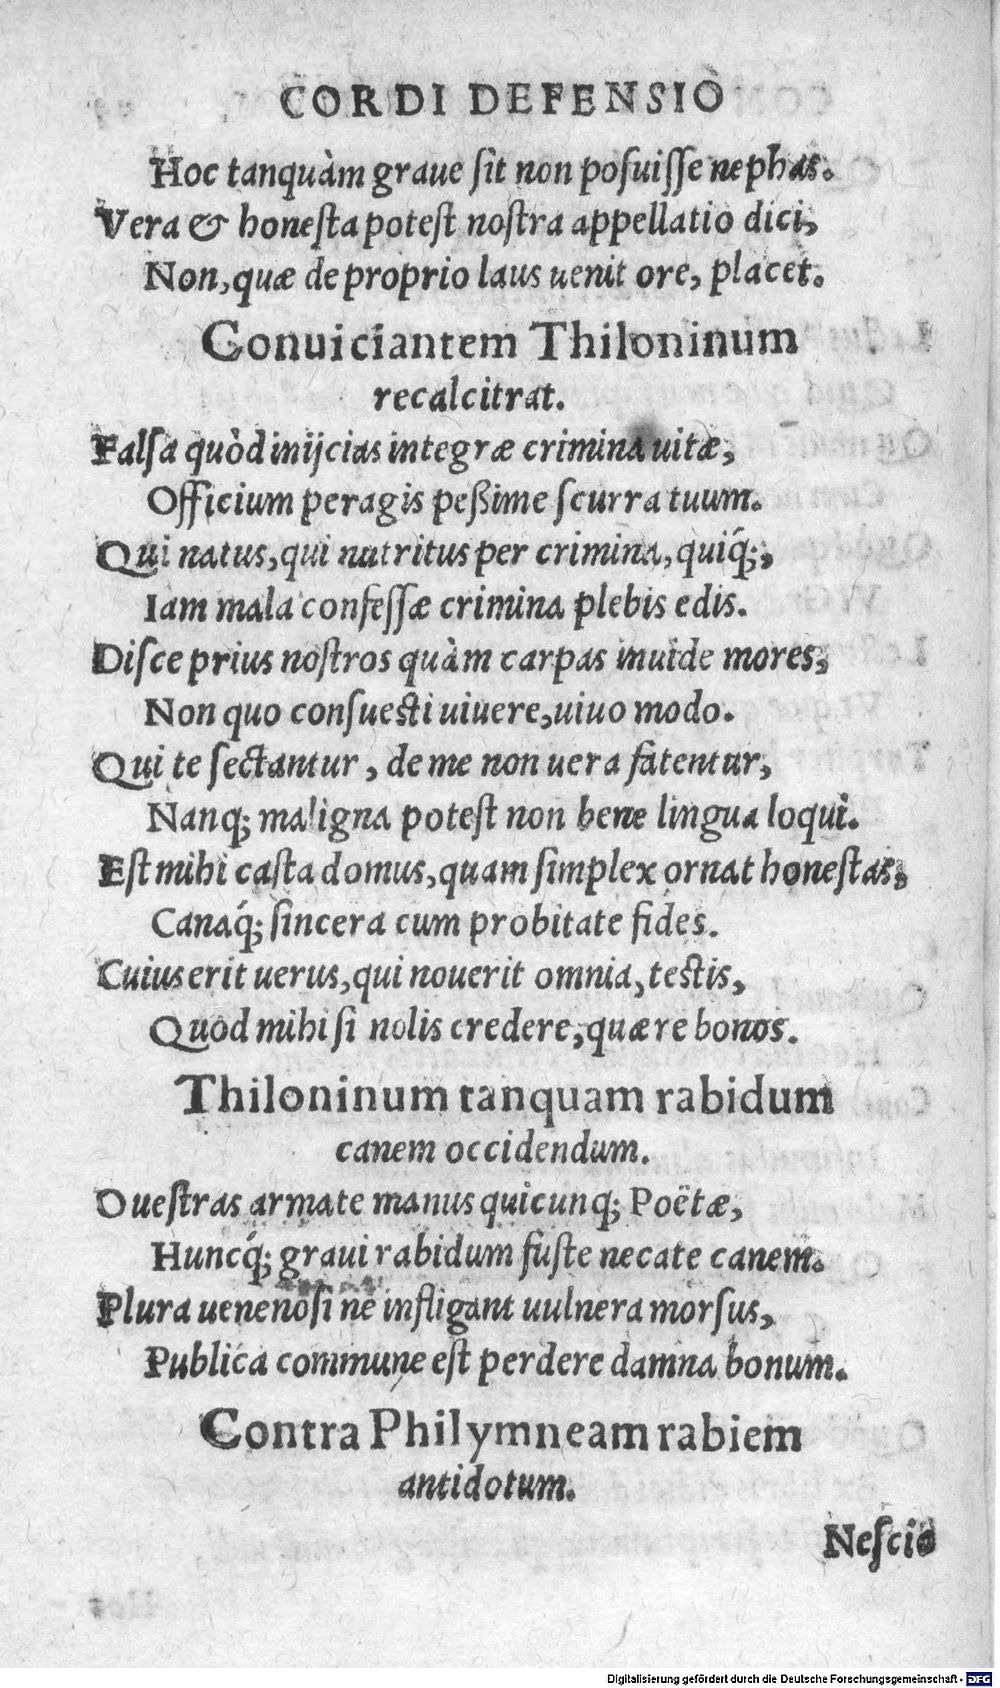 CORDI DEFENSIO
Hoc tanquàm graue ſit non poſuiſſe nephas.
Vera & honeſta poteſt noſtra appellatio dici,
Non, quæ de proprio laus uenit ore, placet.
Conuiciantem Thiloninum
recalcitrat.
Falſa quòd inijcias integræ crimina uitæ,
Officium peragis peßime ſcurra tuum.
Qui natus, qui nutritus per crimina, quiq́;,
Iam mala confeſſæ crimina plebis edis.
Diſce prius noſtros quàm carpas inuide mores,
Non quo conſueſti uiuere, uiuo modo.
Qui te ſectantur, de me non uera fatentur,
Nanq; maligna poteſt non bene lingua loqui.
Eſt mihi caſta domus, quam ſimplex ornat honeſtas,
Canaq́; ſincera cum probitate fides.
Cuius erit uerus, qui nouerit omnia, teſtis,
Quòd mihi ſi nolis credere, quære bonos.
Thiloninum tanquam rabidum
canem occidendum.
O ueſtras armate manus quicunq; Poëtæ,
Huncq́; graui rabidum fuſte necate canem.
Plura uenenoſi ne infligant uulnera morſus,
Publica commune eſt perdere damna bonum.
Contra Philymneam rabiem
antidotum.
Neſcio
Digitalisierung gefördert durch die Deutsche Forschungsgemeinschaft - DFG